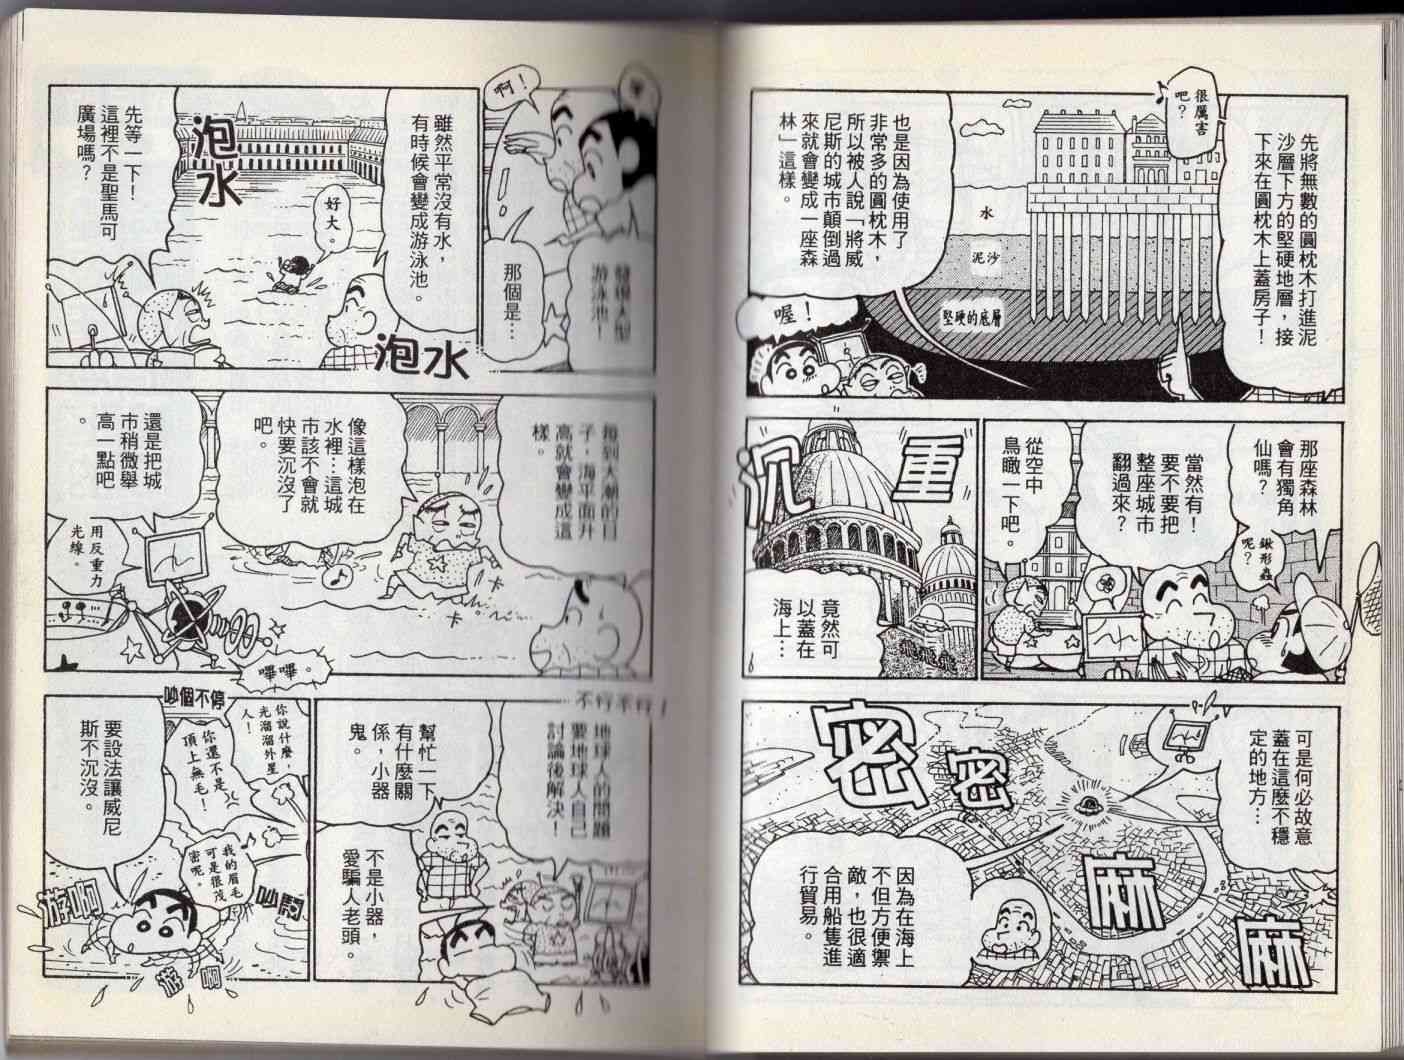 先將無數的圓枕木打進泥
沙層下方的堅硬地層，接
下來在圓枕木上蓋房子！
很厲害
吧？
水
泥沙
堅硬的底層
也是因為使用了
非常多的圓枕木，
所以被人說「將威
尼斯的城市顛倒過
來就會變成一座森
林」這樣。
喔！
那座森林
會有獨角
仙嗎？
鍬形蟲
呢？
當然有！
要不要把
整座城市
翻過來？
從空中
鳥瞰一下吧。
重
沉
竟然可
以蓋在
海上…
飛飛飛
可是何必故意
蓋在這麼不穩
定的地方…
密
密
麻
麻
因為在海上
不但方便禦
敵，也很適
合用船隻進
行貿易。
發現大型
游泳池！
啊！
那個是…
雖然平常沒有水，
有時候會變成游泳池。
好大。
泡水
泡水
先等一下！
這裡不是聖馬可
廣場嗎？
每到大潮的日
子，海平面升
高就會變成這
樣。
卡
卡
像這樣泡在
水裡…這城
市該不會就
快要沉沒了
吧。
還是把城
市稍微舉
高一點吧
。
用反重力
光線。
嗶嗶。
不行不行！
地球人的問題
要地球人自己
討論後解決！
幫忙一下
有什麼關
係，小器
鬼。
不是小器，
愛騙人老頭。
吵個不停
你說什麼，
光溜溜外星
人！
你還不是
頂上無毛！
我的眉毛
可是很茂
密呢。
要設法讓威尼
斯不沉沒。
游啊
游啊